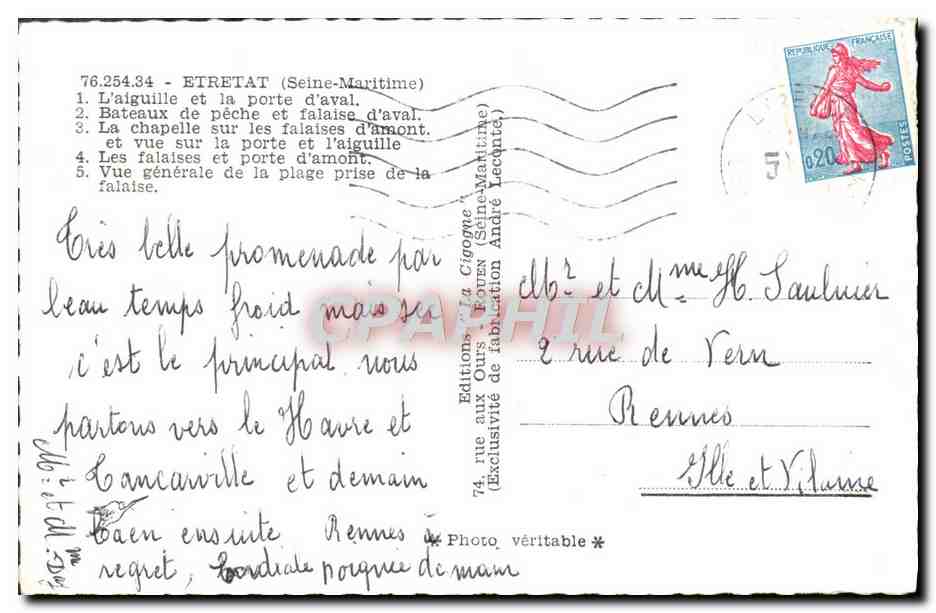 76.254.34 - ETRETAT (Seine-Maritime)
1. L'aiguille et la porte d'aval.
2. Bateaux de pêche et falaise d'aval.
3. La chapelle sur les falaises d'amont.
et vue sur la porte et l'aiguille
4. Les falaises et porte d'amont.
5. Vue générale de la plage prise de la
falaise.
Très belle promenade par
beau temps froid mais sec
c'est le principal nous
partons vers le Havre et
Tancarville et demain
Caen ensuite Rennes à
regret, Cordiale poignée de main
Mr et Mme
Editions "La Cigogne"
74, rue aux Ours - ROUEN (Seine-Maritime)
(Exclusivité de fabrication André Leconte)
* Photo véritable *
REPUBLIQUE FRANÇAISE
0,20
POSTES
Mr et Mme H. Saulnier
2 rue de Vern
Rennes
Ille et Vilaine
CPAPHIL